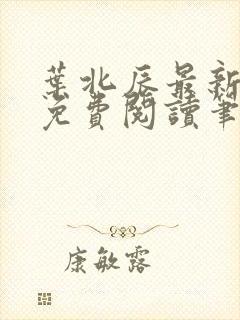 葉北辰最新
免費閱讀筆
康敏露